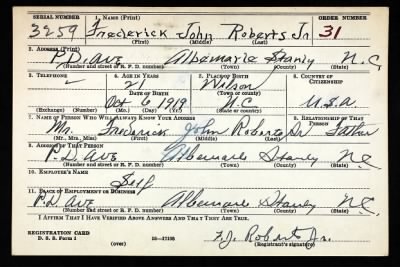 SERIAL NUMBER 1. NAME (Print) ORDER NUMBER
3259 Frederick John Roberts Jr. 31
(First) (Middle) (Last)
2. ADDRESS (Print)
P.D. Ave Albemarle Stanly N.C
(Number and street or R. F. D. number) (Town) (County) (State)
3. TELEPHONE 4. AGE IN YEARS 5. PLACE OF BIRTH 6. COUNTRY OF CITIZENSHIP
21 Wilson
DATE OF BIRTH (Town or county)
Oct 6 1919 N.C. U.S.A.
(Exchange) (Number) (Mo.) (Day) (Yr.) (State or country)
7. NAME OF PERSON WHO WILL ALWAYS KNOW YOUR ADDRESS 8. RELATIONSHIP OF THAT PERSON
Mr. Frederick John Roberts Sr Father
(Mr., Mrs., Miss) (First) (Middle) (Last)
9. ADDRESS OF THAT PERSON
P.D. Ave Albemarle Stanly N.C.
(Number and street or R. F. D. number) (Town) (County) (State)
10. EMPLOYER'S NAME
Self
11. PLACE OF EMPLOYMENT OR BUSINESS
P.D. Ave Albemarle Stanly N.C.
(Number and street or R. F. D. number) (Town) (County) (State)
I AFFIRM THAT I HAVE VERIFIED ABOVE ANSWERS AND THAT THEY ARE TRUE.
REGISTRATION CARD
D. S. S. Form 1 16—17105 F.J. Roberts Jr.
(over) (Registrant's signature)